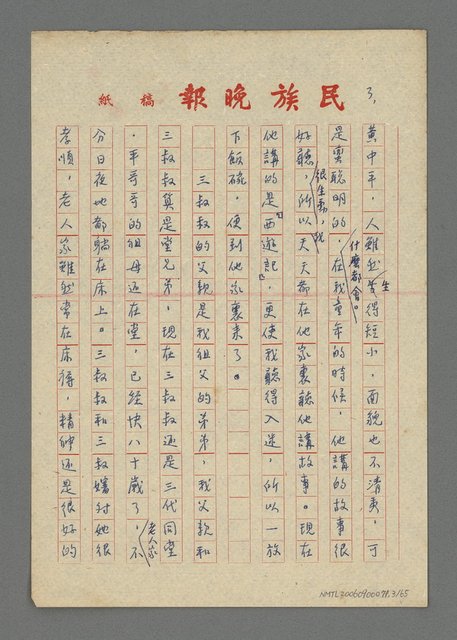 民族晚報 稿紙
3,
黃中年，人雖然生得短小，面貌也不清爽，可
是實聰明的，什麼都會。在我童年的時候，他講的故事很
好聽，很生動，所以天天都在他家裏聽他講故事。現在
他講的是「西遊記」，更使我聽得入迷，所以一放
下飯碗，便到他家裏來了。
三叔叔的父親是我祖父的弟弟，我父親和
三叔叔算是堂兄弟，現在三叔叔還是三代同堂
，平哥哥的祖母還在堂，已經快八十歲了，不
分日夜她都躺在床上。三叔叔和三叔嬸對她很
孝順，老人家雖然常在床裡，精神還是很好的
老人家
NMTL20060900079.3/65